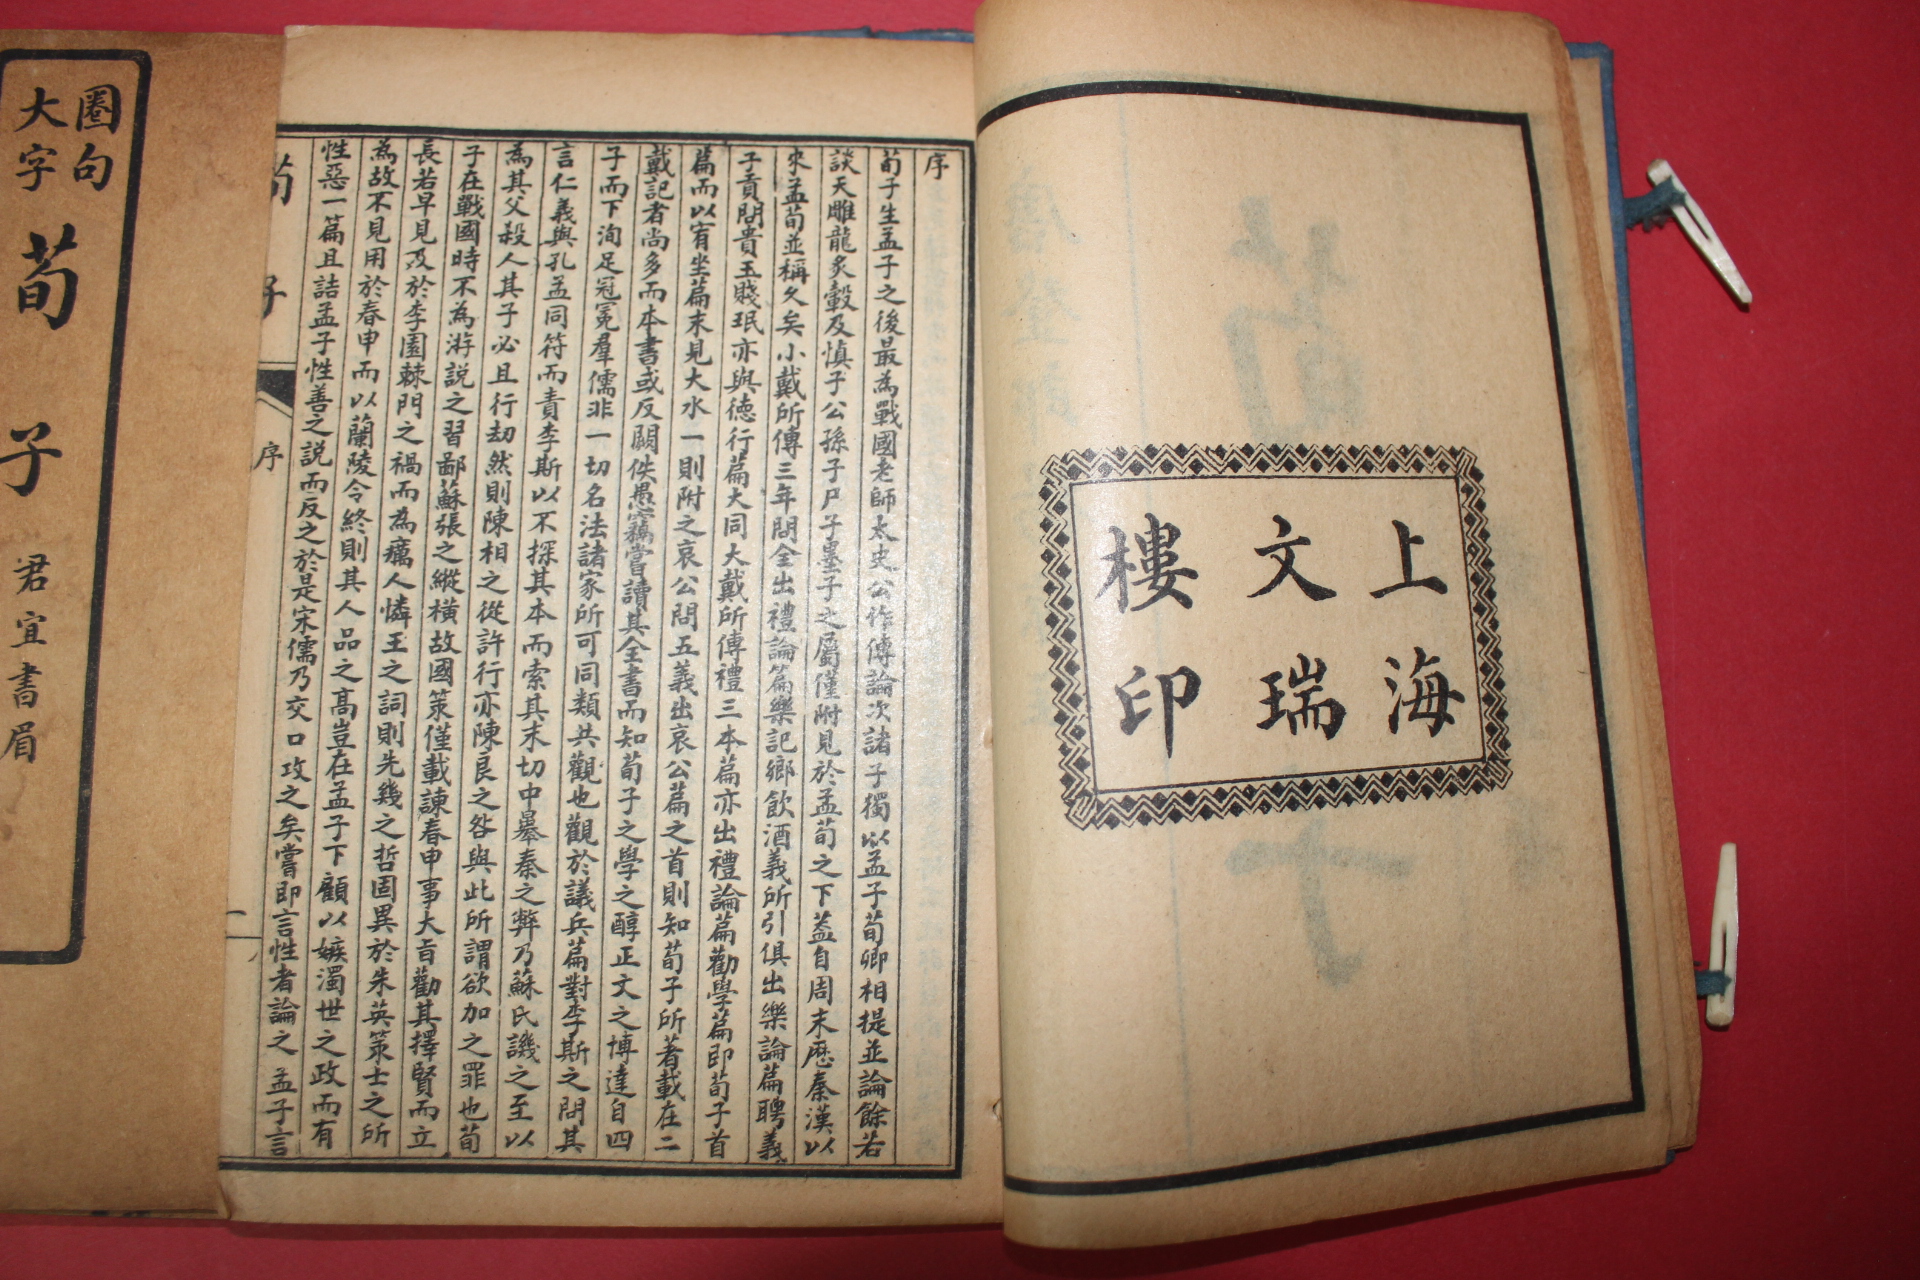 上海
文瑞
樓印
序
荀子生孟子之後最為戰國老師太史公作傳論次諸子獨以孟子荀卿相提並論餘若
談天雕龍炙轂及慎子公孫子尸子墨子之屬僅附見於孟荀之下蓋自周末歷秦漢以
來孟荀並稱久矣小戴所傳三年問全出禮論篇樂記鄉飲酒義所引俱出樂論篇聘義
子貢問貴玉賤珉亦與德行篇大同大戴所傳禮三本篇亦出禮論篇勸學篇即荀子首
篇而以宥坐篇末見大水一則附之哀公問五義出哀公篇之首則知荀子所著載在二
戴記者尚多而本書或反闕佚愚竊嘗讀其全書而知荀子之學之醇正文之博達自四
子而下洵足冠冕羣儒非一切名法諸家所可同類共觀也觀於議兵篇對李斯之問其
言仁義與孔孟同符而責李斯以不探其本而索其末切中暴秦之弊乃蘇氏譏之至以
為其父殺人其子必且行劫然則陳相之從許行亦陳良之咎與此所謂欲加之罪也荀
子在戰國時不為游說之習鄙蘇張之縱橫故國策僅載諫春申事大旨勸其擇賢而立
長若早見及於李園棘門之禍而為癘人憐王之詞則先幾之哲固異於朱英策士之所
為故不見用於春申而以蘭陵令終則其人品之高豈在孟子下顧以嫉濁世之政而有
性惡一篇且詰孟子性善之說而反之於是宋儒乃交口攻之矣嘗即言性者論之孟子言
荀子
序
一
圈句
大字
荀子
君宜書眉